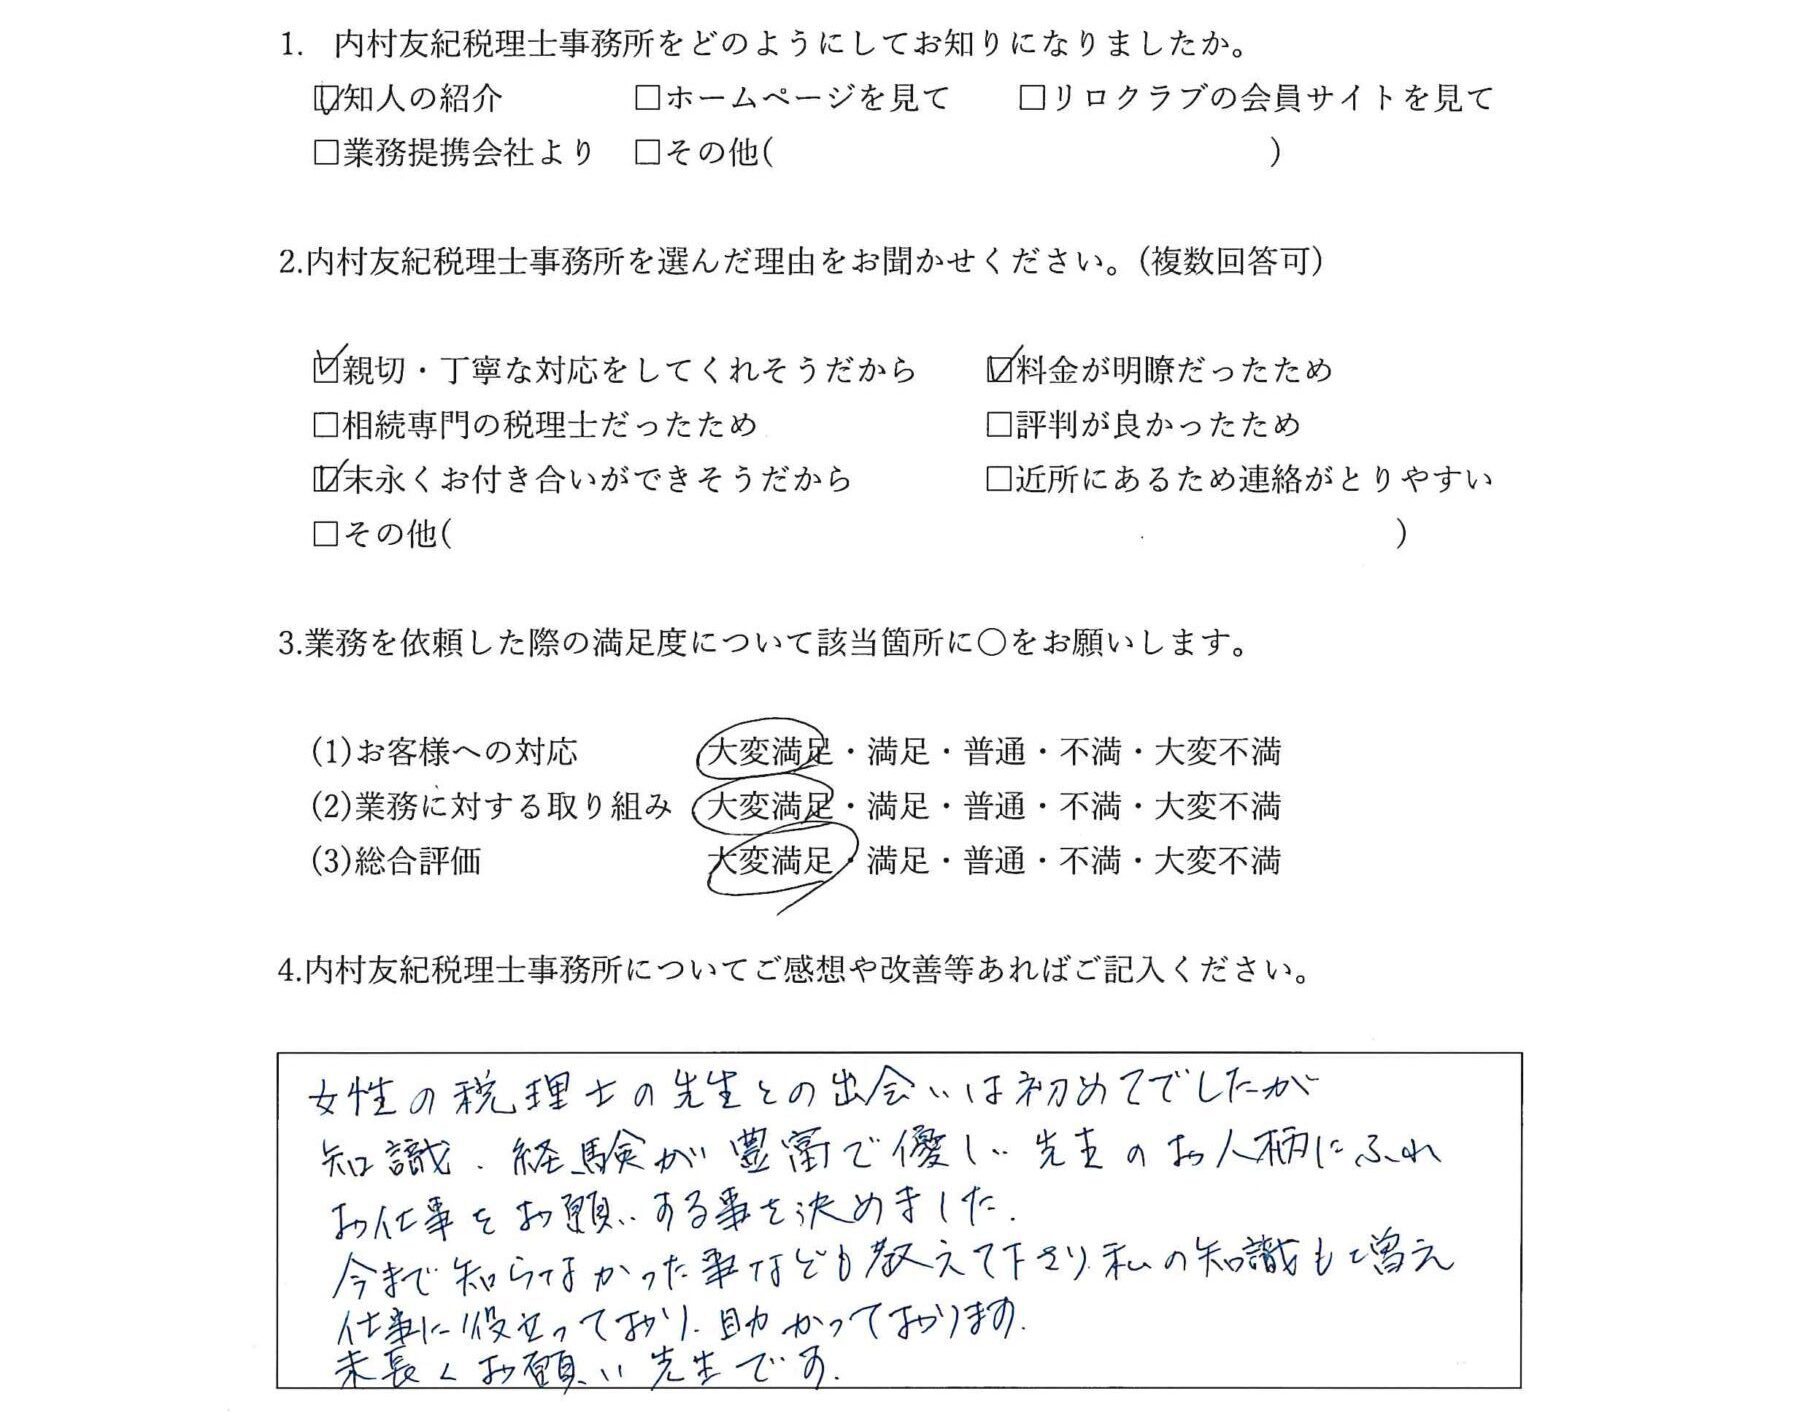 1. 内村友紀税理士事務所をどのようにしてお知りになりましたか。
☑知人の紹介 □ホームページを見て □リロクラブの会員サイトを見て
□業務提携会社より □その他( )
2.内村友紀税理士事務所を選んだ理由をお聞かせください。(複数回答可)
☑親切・丁寧な対応をしてくれそうだから ☑料金が明瞭だったため
□相続専門の税理士だったため □評判が良かったため
☑末永くお付き合いができそうだから □近所にあるため連絡がとりやすい
□その他( )
3.業務を依頼した際の満足度について該当箇所に〇をお願いします。
(1)お客様への対応 大変満足・満足・普通・不満・大変不満
(2)業務に対する取り組み 大変満足・満足・普通・不満・大変不満
(3)総合評価 大変満足・満足・普通・不満・大変不満
4.内村友紀税理士事務所についてご感想や改善等あればご記入ください。
女性の税理士の先生との出会いは初めてでしたが
知識、経験が豊富で優しい先生のお人柄にふれ
お仕事をお願いする事を決めました.
今まで知らなかった事なども教えて下さり、私の知識も増え
仕事に役立っており、助かっております.
末長くお願い先生です.